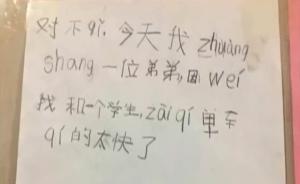 对不qǐ，今天我 zhuàng
shang 一位弟弟，因 wéi
我和一个学生，zài qí 单车
qí 的太快了